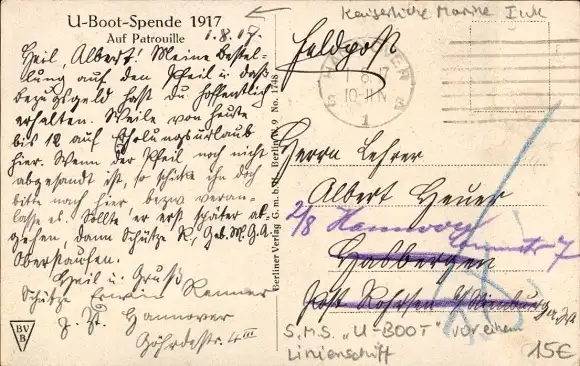 U-Boot-Spende 1917
Auf Patrouille
1.8.17.
Heil, Albert! Meine Bestel-
lung auf den Pfeil u. das
bezugsgeld hast du hoffentlich
erhalten. Weile von heute
bis 12 auf Erholungsurlaub
hier. Wenn der Pfeil noch nicht
abgesandt ist, so schicke ihn doch
bitte nach hier bezw. veran-
lasse es. Sollte er erst später ab-
gehen, dann Schütze R., Geb. M. G. A.
Oberstaufen.
Heil u. Gruß
Schütze Erwin Renner
z. Zt. Hannover
Göhrdestr. 4 III
BVB
Berliner Verlag G. m. b. H. Berlin W. 9 No. 1748
Kaiserliche Marine
Feldpost
HANNOVER
10-11 N
1
Herrn Lehrer
Albert Heuer
2/8 Hannover
7
Hasbergen
Post
S.M.S. "U-BOOT" vor einem
Linienschiff
15€